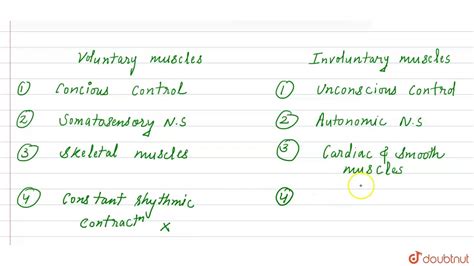 Voluntary muscles Involuntary muscles
① Concious Control ① Unconscious Control
② Somatosensory N.S ② Autonomic N.S
③ Skeletal muscles ③ Cardiac & Smooth
muscles
④ Constant rhythmic ④
Contractⁿ x
doubtnut